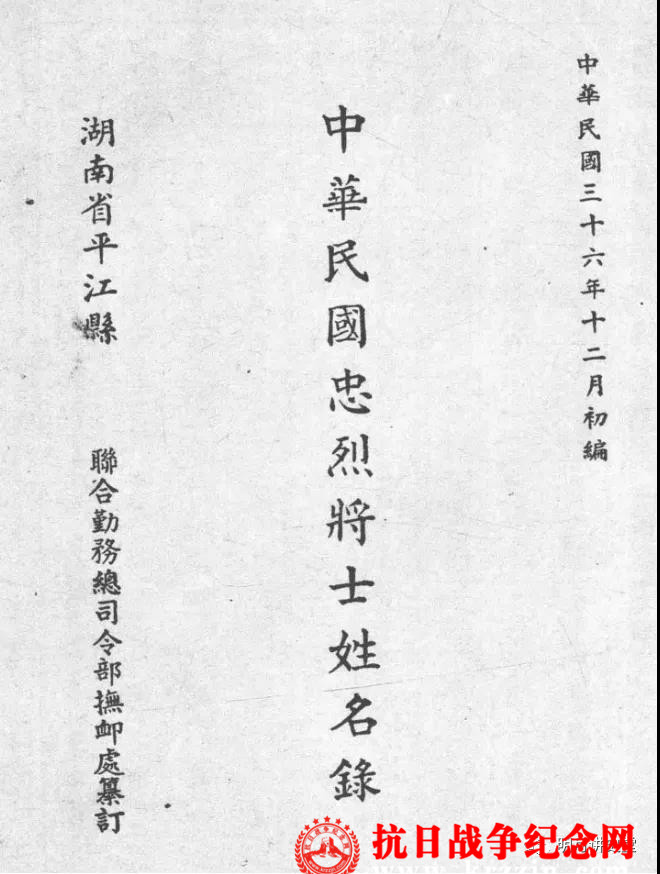 中華民國三十六年十二月初編
中華民國忠烈將士姓名錄
湖南省平江縣
聯合勤務總司令部撫卹處纂訂
抗日战争纪念网